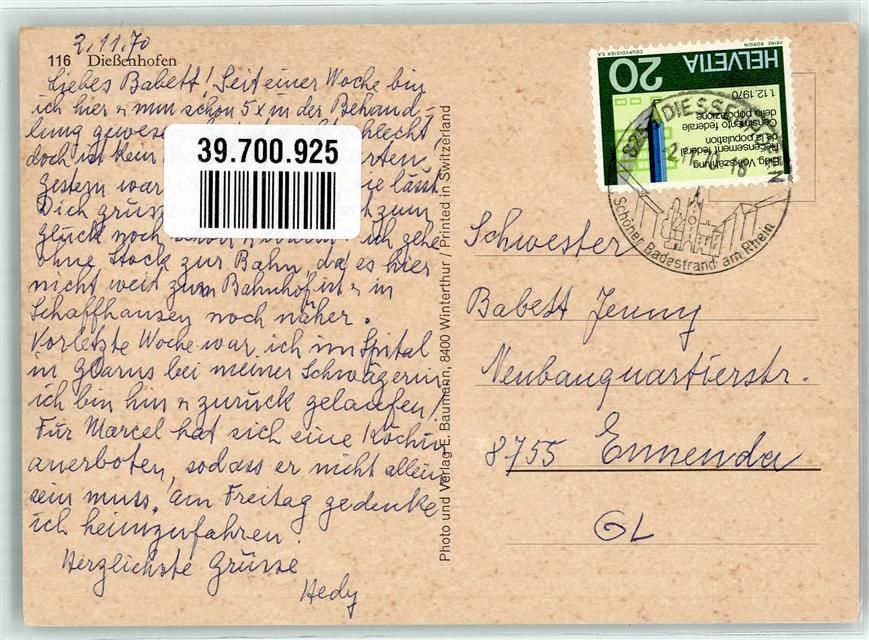 2.11.70
116 Dießenhofen
Liebes Babett! Seit einer Woche bin
ich hier u nun schon 5x in der Behand-
lung gewesen schlecht
doch ist kein
Gestern war sie lässt
Dich grüssen zum
Glück noch ich gehe
ohne Stock zur Bahn, da es hier
nicht weit zum Bahnhof ist u in
Schaffhausen noch näher.
Vorletzte Woche war ich im Spital
in Glarus bei meiner Schwägerin,
ich bin hin u zurück gelaufen!
Für Marcel hat sich eine Köchin
anerboten, sodass er nicht allein
sein muss. Am Freitag gedenke
ich heimzufahren.
Herzlichste Grüsse
Hedy
39.700.925
Photo und Verlag E. Baumann, 8400 Winterthur / Printed in Switzerland
HELVETIA
20
Eidg. Volkszählung
Recensement fédéral
de la population
Censimento federale
della popolazione
1.12.1970
HEINZ BÜRGIN
COURVOISIER S.A.
DIESSENHOFEN
2.11.70-18
Schöner Badestrand am Rhein
Schwester
Babett Jenny
Neubauquartierstr.
8755 Ennenda
GL